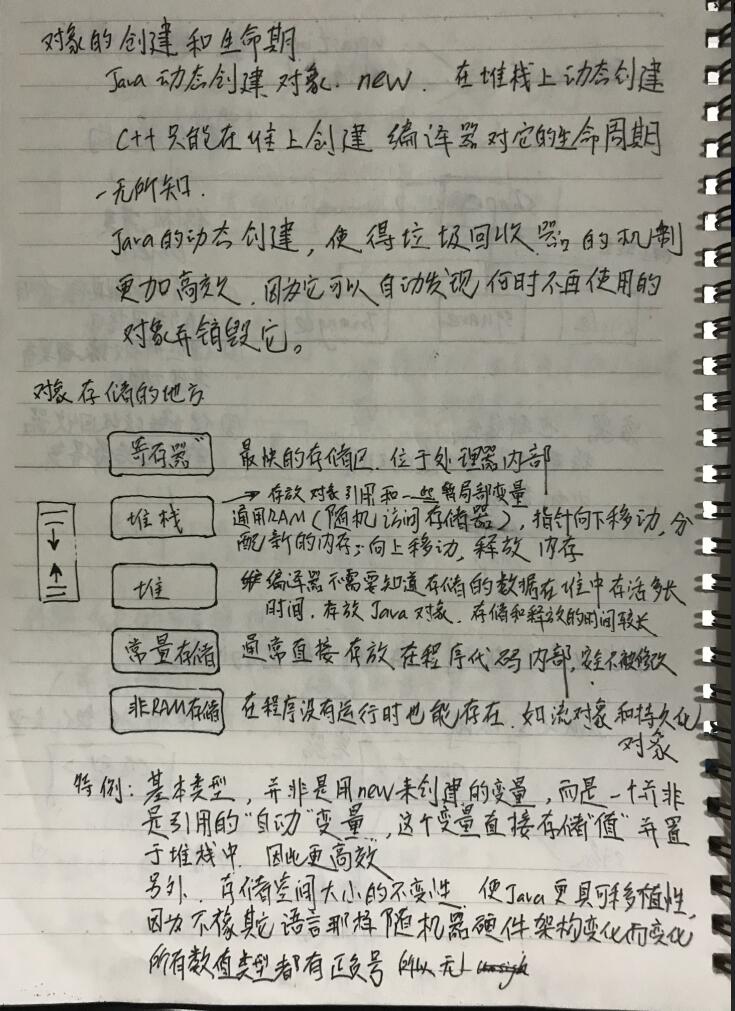 对象的创建和生命期
Java动态创建对象. new. 在堆栈上动态创建
C++只能在堆上创建 编译器对它的生命周期
一无所知.
Java的动态创建, 使得垃圾回收器的机制
更加高效. 因为它可以自动发现何时不再使用的
对象并销毁它。
对象存储的地方
寄存器 最快的存储区. 位于处理器内部
→ 存放对象引用和一些局部变量
堆栈 通用RAM(随机访问存储器), 指针向下移动, 分
配新的内存; 向上移动, 释放内存
堆 编译器不需要知道存储的数据在堆中存活多长
时间. 存放Java对象. 存储和释放的时间较长
常量存储 通常直接存放在程序代码内部, 安全不被修改
非RAM存储 在程序没有运行时也能存在. 如流对象和持久化
对象
特例: 基本类型, 并非是用new来创建的变量, 而是一个并非
是引用的"自动"变量, 这个变量直接存储"值"并置
于堆栈中. 因此更高效
另外. 存储空间大小的不变性. 使Java更具可移植性,
因为不像其它语言那样随机器硬件架构变化而变化
所有数值类型都有正负号 所以无